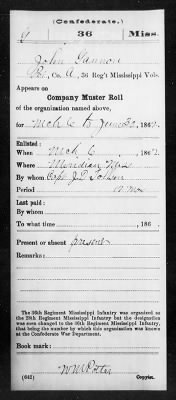 (Confederate.)
G 36 Miss.
John Gannon
Co. A, 36 Reg't Mississippi Vols.
Appears on
Company Muster Roll
of the organization named above,
for Mch 6 to June 30, 1862.
Enlisted:
When Mch 6, 1862.
Where Meridian Miss
By whom Capt J.D.
Period 12 mos
Last paid:
By whom
To what time , 186 .
Present or absent present
Remarks:
The 36th Regiment Mississippi Infantry was organized as
the 28th Regiment Mississippi Infantry but the designation
was soon changed to the 36th Regiment Mississippi Infantry,
that being the number by which this organization was known
at the Confederate War Department.
Book mark:
(642) Copyist.